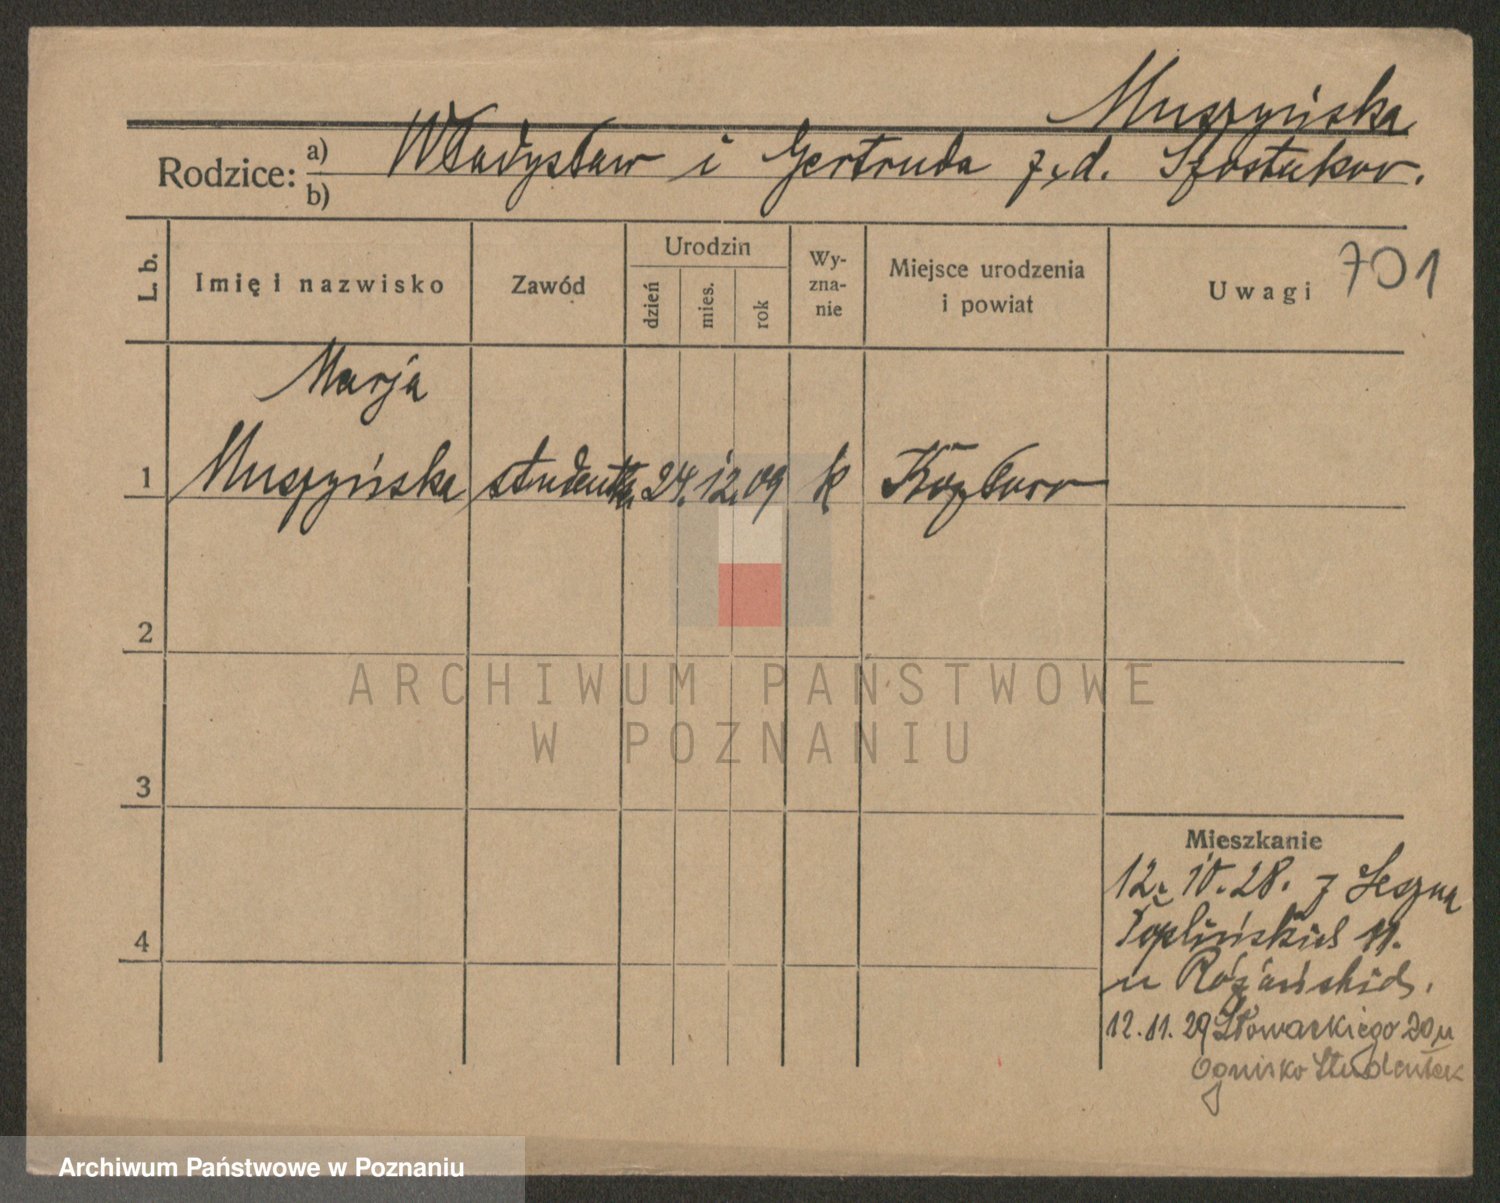 Muszyńska
Rodzice: a) Władysław i Gertruda z d.
b)
L. b.
Imię i nazwisko
Zawód
Urodzin
dzień
mies.
rok
Wy-
zna-
nie
Miejsce urodzenia
i powiat
Uwagi
701
Marja
1 Muszyńska studentka 24. 12. 09 k
2
3
4
Mieszkanie
12. 10. 28. z Leszna
11.
u Różańskich.
12. 11. 29 Słowackiego 20 u
Ognisko Studentek
ARCHIWUM PAŃSTWOWE
W POZNANIU
Archiwum Państwowe w Poznaniu